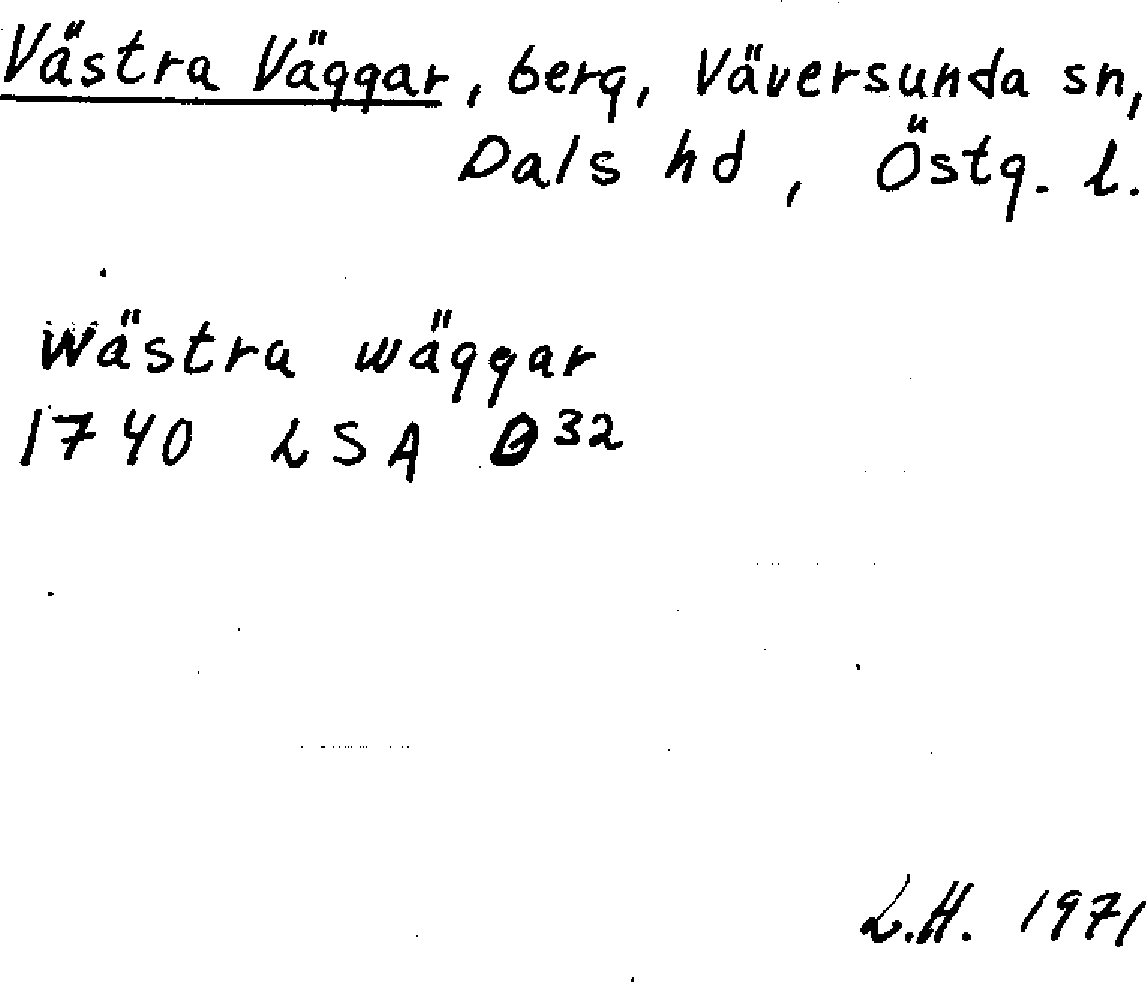 Västra Väggar, berg, Väversunda sn,
Dals hd, Östg. l.
Wästra wäggar
1740 LSA D32
L.H. 1971